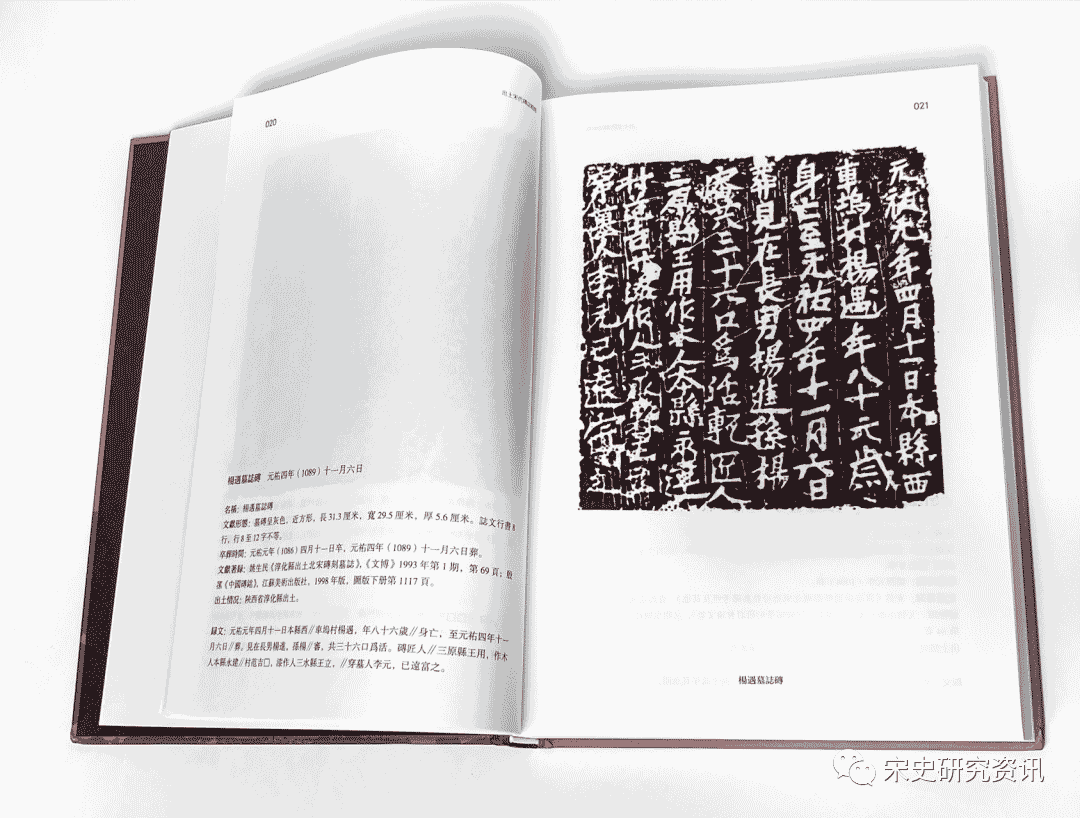 020
出土宋代磚誌輯
楊遇墓誌磚 元祐四年（1089）十一月六日
名稱：楊遇墓誌磚
文獻形態：墓磚呈灰色，近方形，長 31.3 厘米，寬 29.5 厘米，厚 5.6 厘米。誌文行書 8
行，行 8 至 12 字不等。
卒葬時間：元祐元年（1086）四月十一日卒，元祐四年（1089）十一月六日葬。
文獻著録：姚生民《淳化縣出土北宋磚刻墓誌》，《文博》1993 年第 1 期，第 69 頁；殷
蓀《中國磚銘》，江蘇美術出版社，1998 年版，圖版下册第 1117 頁。
出土情况：陝西省淳化縣出土。
録文：元祐元年四月十一日本縣西∥車塢村楊遇，年八十六歲∥身亡，至元祐四年十一
月六日∥葬。見在長男楊進，孫楊∥審，共三十六口爲活。磚匠人∥三原縣王用，作木
人本縣永建∥村范吉□，漆作人三水縣王立，∥穿墓人李元，已遠富之。
021
元祐元年四月十一日本縣西
車塢村楊遇年八十六歲
身亡至元祐四年十一月六日
葬見在長男楊進孫楊
審共三十六口爲活甎匠人
三原縣王用作木人本縣永建
村范吉 作人三水縣王立
穿墓人李元已遠富之
楊遇墓誌磚
宋史研究资讯